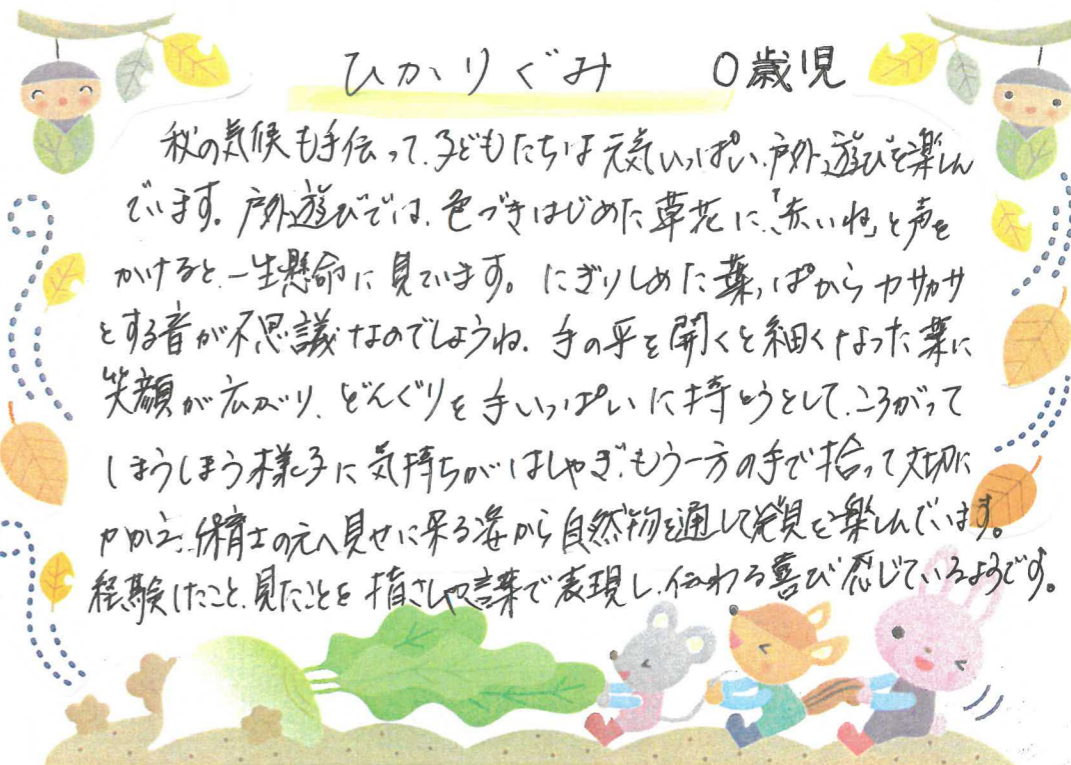 ひかりぐみ 0歳児
秋の気候も手伝って、子どもたちは元気いっぱい、戸外遊びを楽しん
でいます。戸外遊びでは、色づきはじめた草花に、「赤いね」と声を
かけると、一生懸命に見ています。にぎりしめた葉っぱからカサカサ
とする音が不思議なのでしょうね、手の平を開くと細くなった葉に
笑顔が広がり、どんぐりを手いっぱいに持とうとして、ころがって
しまうしまう様子に気持ちがはしゃぎ、もう一方の手で拾って大切に
かかえ、保育士の元へ見せに来る姿から自然物を通して発見を楽しんでいます。
経験したこと、見たことを指さしや言葉で表現し、伝わる喜び感じているようです。